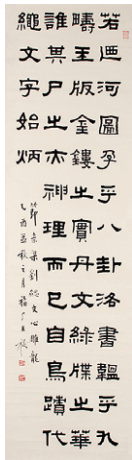 若迺河圖孕乎八卦洛書韞乎九
疇玉版金鏤之實丹文綠牒之華
誰其尸之亦神理而已自鳥蹟代
繩文字始炳
節录梁劉勰文心雕龍
乙酉孟秋之月